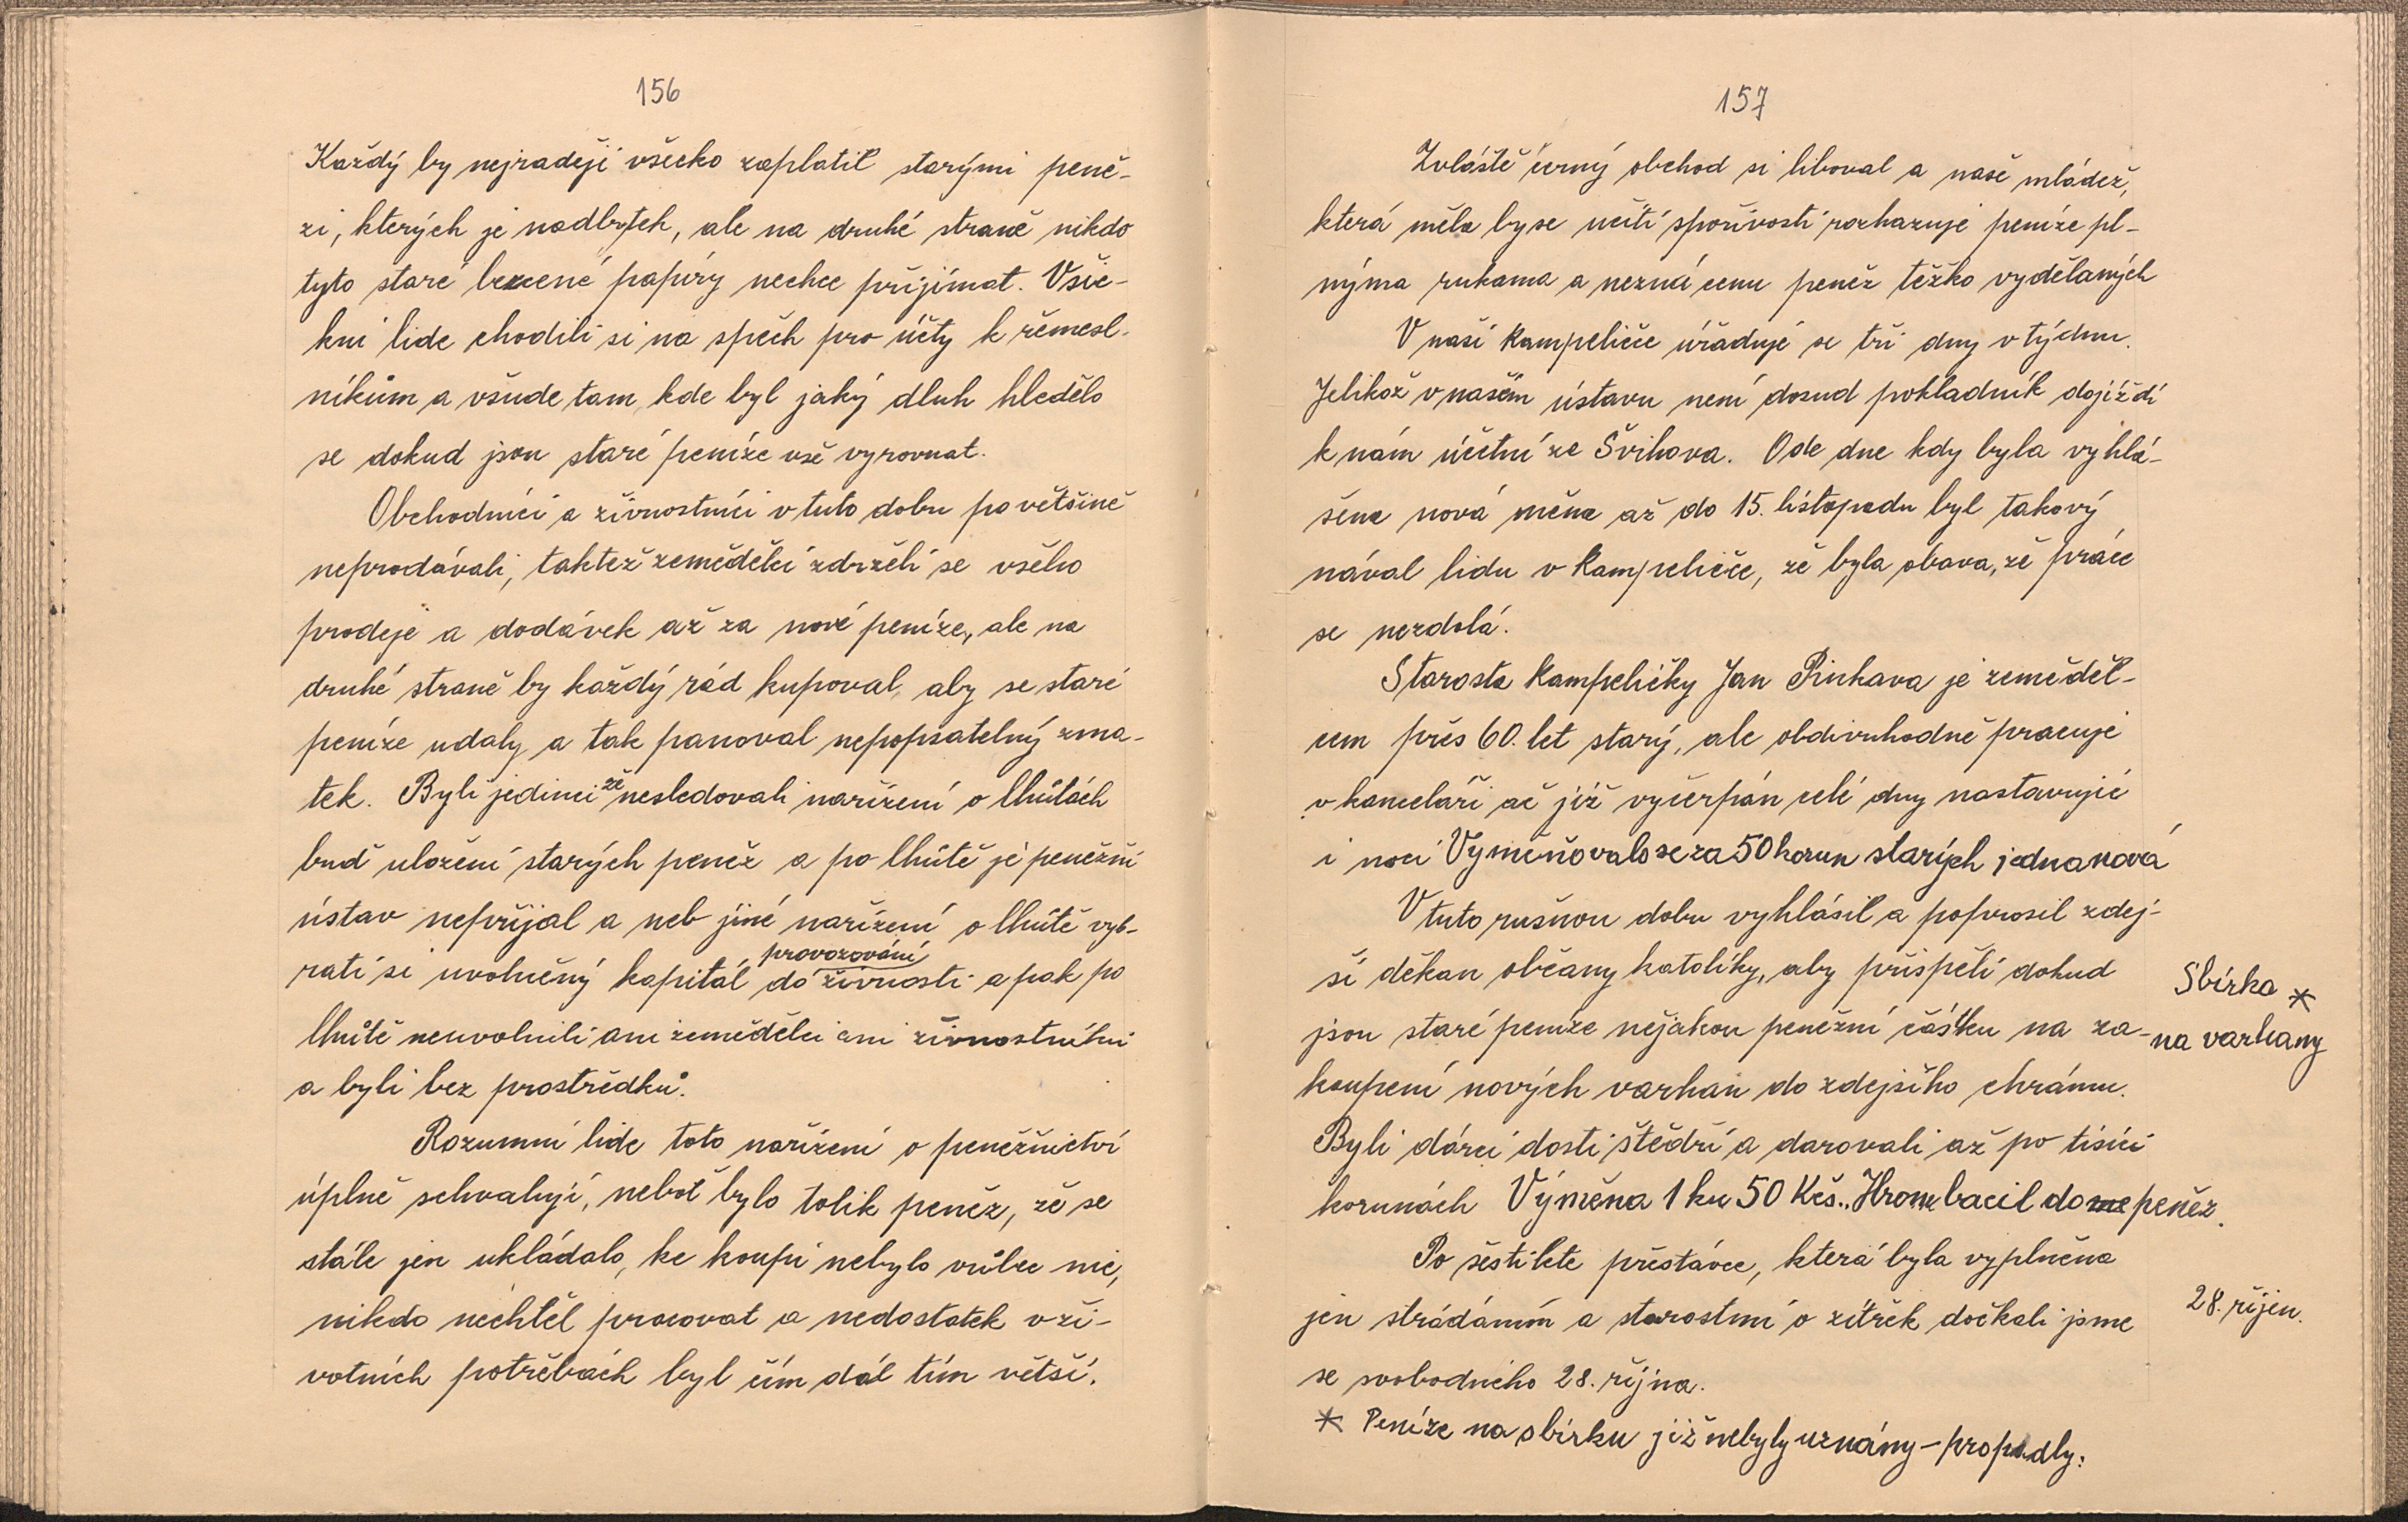 156
Každý by nejraději všecko zaplatil starými peně-
zi, kterých je nadbytek, ale na druhé straně nikdo
tyto staré bezcené papíry nechce přijímat. Všic-
kni lide chodili si na spěch pro účty k řemesl-
níkům a všude tam, kde byl jaký dluh hledělo
se dokud jsou staré peníze vše vyrovnat.
Obchodníci a živnostníci v tuto dobu po většině
neprodávali, taktéž zemědělci zdrželi se všeho
prodeje a dodávek až za nové peníze, ale na
druhé straně by každý rád kupoval, aby se staré
peníze udaly a tak panoval nepopsatelný zma-
tek. Byli jedinci že nesledovali nařízení o lhůtách
buď uložení starých peněz a po lhůtě je peněžní
ústav nepřijal a neb jiné nařízení o lhůtě vyb-
rati si uvolněný kapitál do provozování živnosti a pak po
lhůtě neuvolnili ani zemědělci ani živnostníkni
a byli bez prostředků.
Rozumní lide toto nařízení o peněžnictví
úplně schvalují, neboť bylo tolik peněz, že se
stále jen ukládalo, ke koupi nebylo vůbec nic,
nikdo nechtěl pracovat a nedostatek v ži-
votních potřebách byl čím dál tím větší.
157
Zvláště černý obchod si liboval a naše mládež,
která měla by se učiti spořivosti rozhazuje peníze pl-
nýma rukama a nezná cenu peněz těžko vydělaných
V naší Kampeličce úřaduje se tři dny v týdnu.
Jelikož v našem ústavu není dosud pokladník dojíždí
k nám účetní ze Švihova. Ode dne kdy byla vyhlá-
šena nová měna až do 15. listopadu byl takový
nával lidu v Kampeličce, že byla obava, že práce
se nezdolá.
Starosta Kampeličky Jan Pinkava je zeměděl-
cem přes 60. let starý, ale obdivuhodně pracuje
v kanceláři ač již vyčerpán celé dny nastavujíc
i noci Vyměňovalo se za 50 korun starých jedna nová
V tuto rušnou dobu vyhlásil a poprosil zdej-
ší děkan občany katolíky, aby přispěli dokud
jsou staré peníze nějakou peněžní částku na za-
koupení nových varhan do zdejšího chrámu.
Byli dárci dosti štědří a darovali až po tisíci
korunách Výměna 1 ku 50 Kčs. Hrom bacil do me peněz.
Po šestileté přestávce, která byla vyplněna
jen strádáním a starostmi o zítřek dočkali jsme
se svobodného 28. října.
* Peníze na sbírku již nebyly uznány - propadly.
Sbírka *
na varhany
28. říjen.